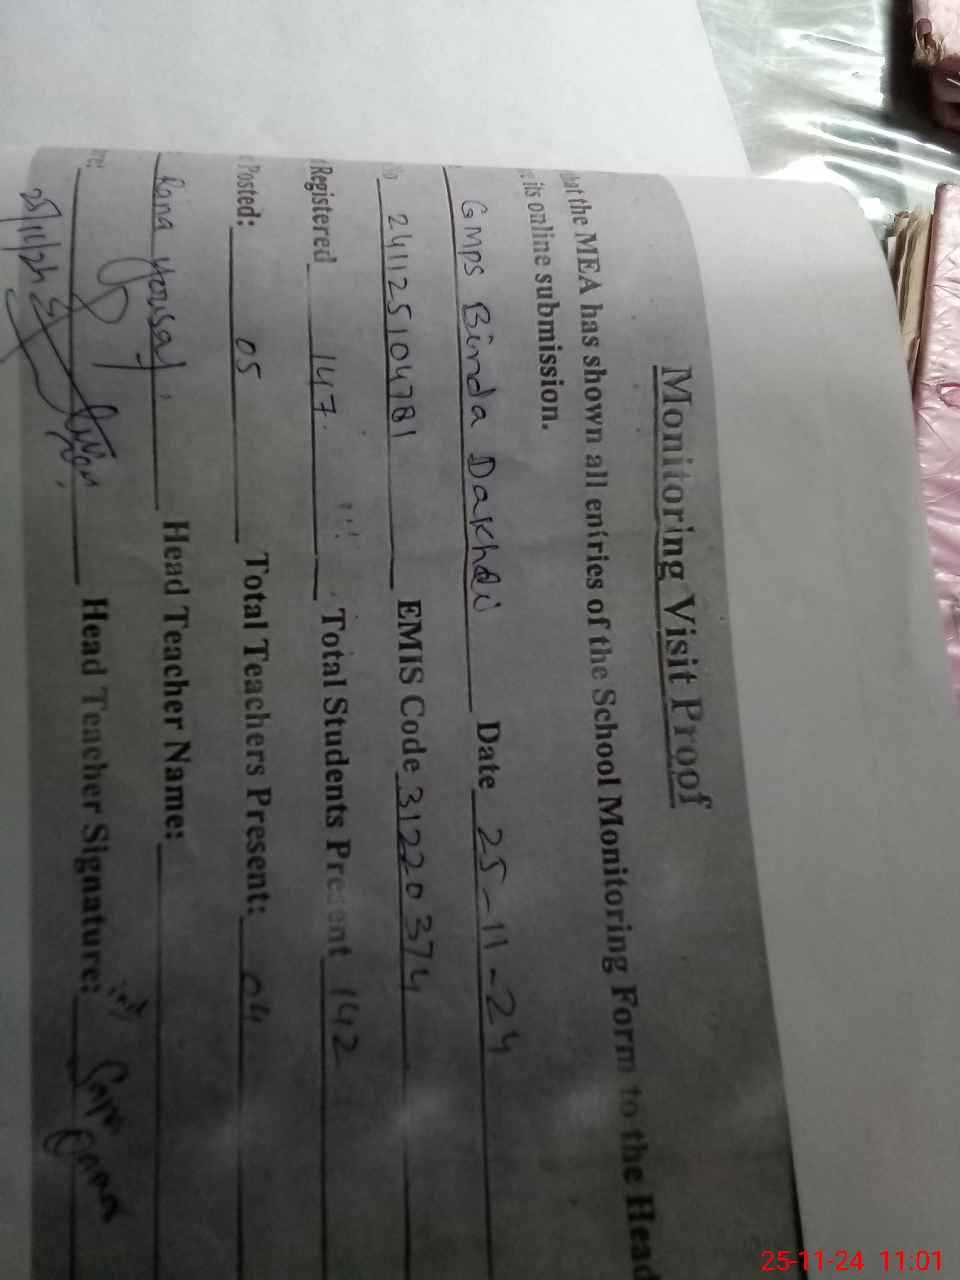 Monitoring Visit Proof
that the MEA has shown all entries of the School Monitoring Form to the Head
its online submission.
GMPS Binda Dakhli Date 25-11-24
No 241125104781 EMIS Code 31220374
Registered 147 Total Students Present 142
Posted: 05 Total Teachers Present: 04
Rana Yousaf Head Teacher Name:
Head Teacher Signature:
25-11-24 11:01